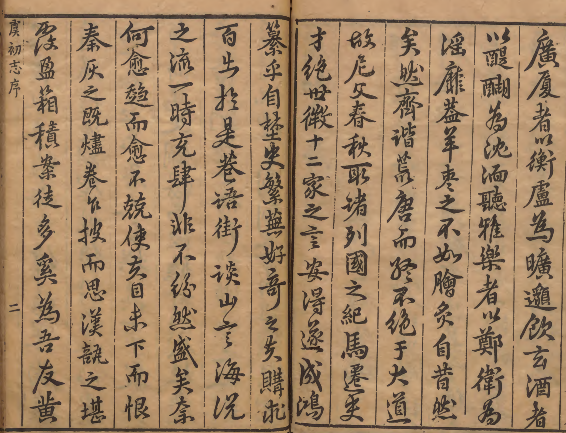 廣厦者以衡廬為曠邈飲玄酒者
以醍醐為沈湎聽雅樂者以鄭衛為
淫靡蓋羊棗之不如膾炙自昔然
矣然齊諧荒唐而終不絕于大道
故尼父春秋取諸列國之紀馬遷吏
才絕世徵十二家之言安得遂成鴻
纂乎自墜史繁蕪好奇之失購求
百出於是巷語街談山言海說
之流一時充肆非不紛然盛矣奈
何愈趨而愈不競使亥目未下而恨
秦灰之既燼卷乍披而思漢瓿之堪
覆盈箱積案徒多奚為吾友黄
虞初志序
二